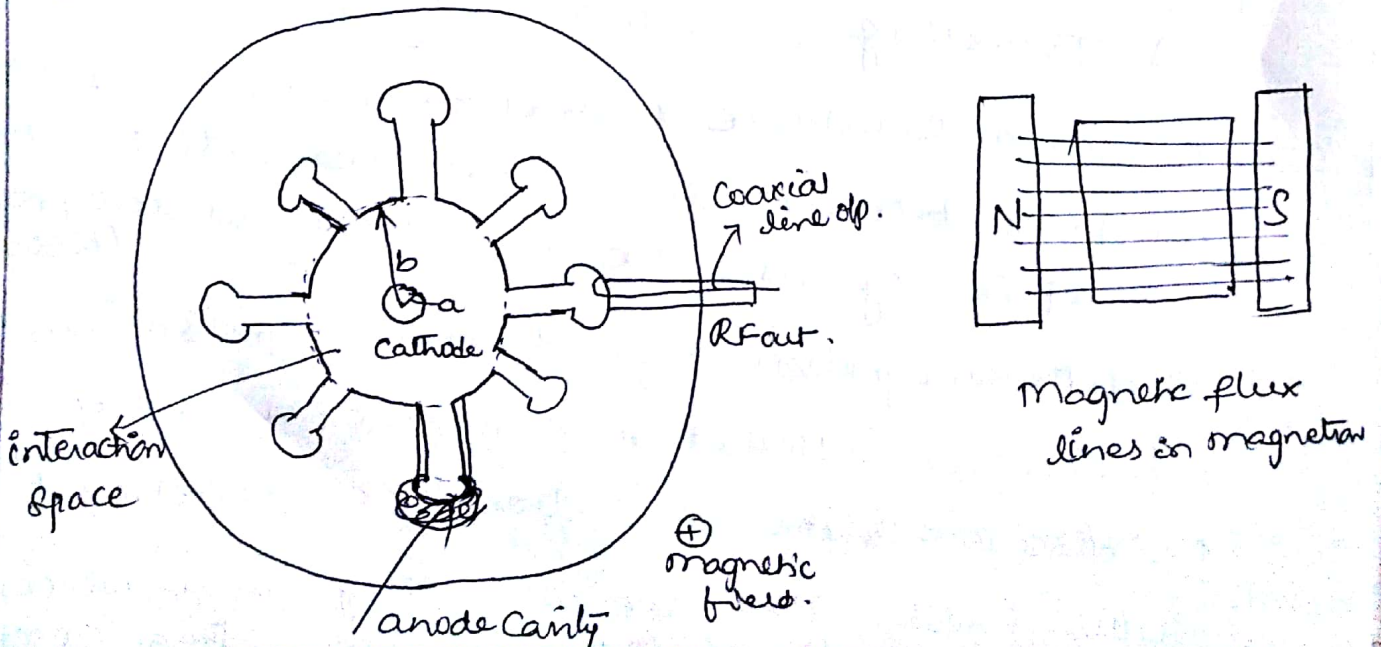 coaxial
line o/p.
b
a
cathode
RF out.
interaction
space
⊕
magnetic
field.
anode cavity
N
S
Magnetic flux
lines in magnetron